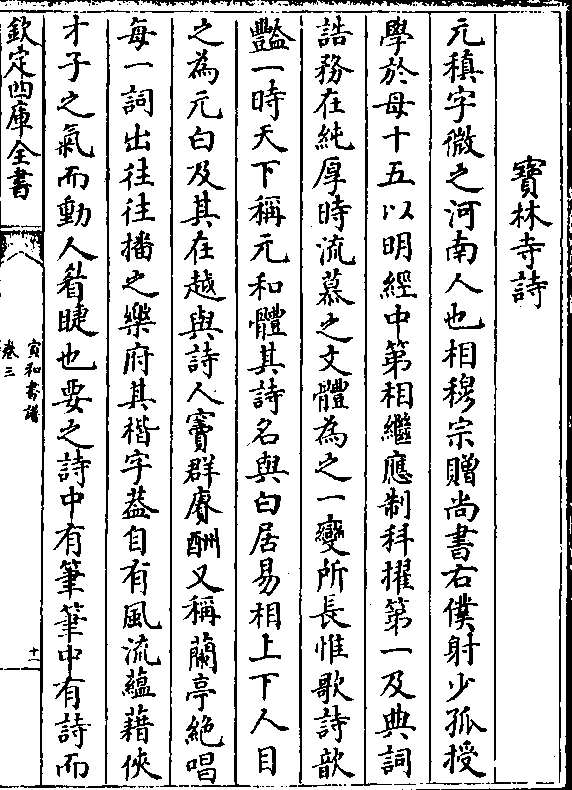 寳林寺詩
元稹字微之河南人也相穆宗贈尚書右僕射少孤授
學於母十五以明經中第相繼應制科擢第一及典詞
誥務在純厚時流慕之文體為之一變所長惟歌詩歆
豔一時天下稱元和體其詩名與白居易相上下人目
之為元白及其在越與詩人竇群賡酬又稱蘭亭絶唱
每一詞出往往播之樂府其楷字葢自有風流蘊藉俠
才子之氣而動人眉睫也要之詩中有筆筆中有詩而
欽定四庫全書
宣和書譜
卷三
十一